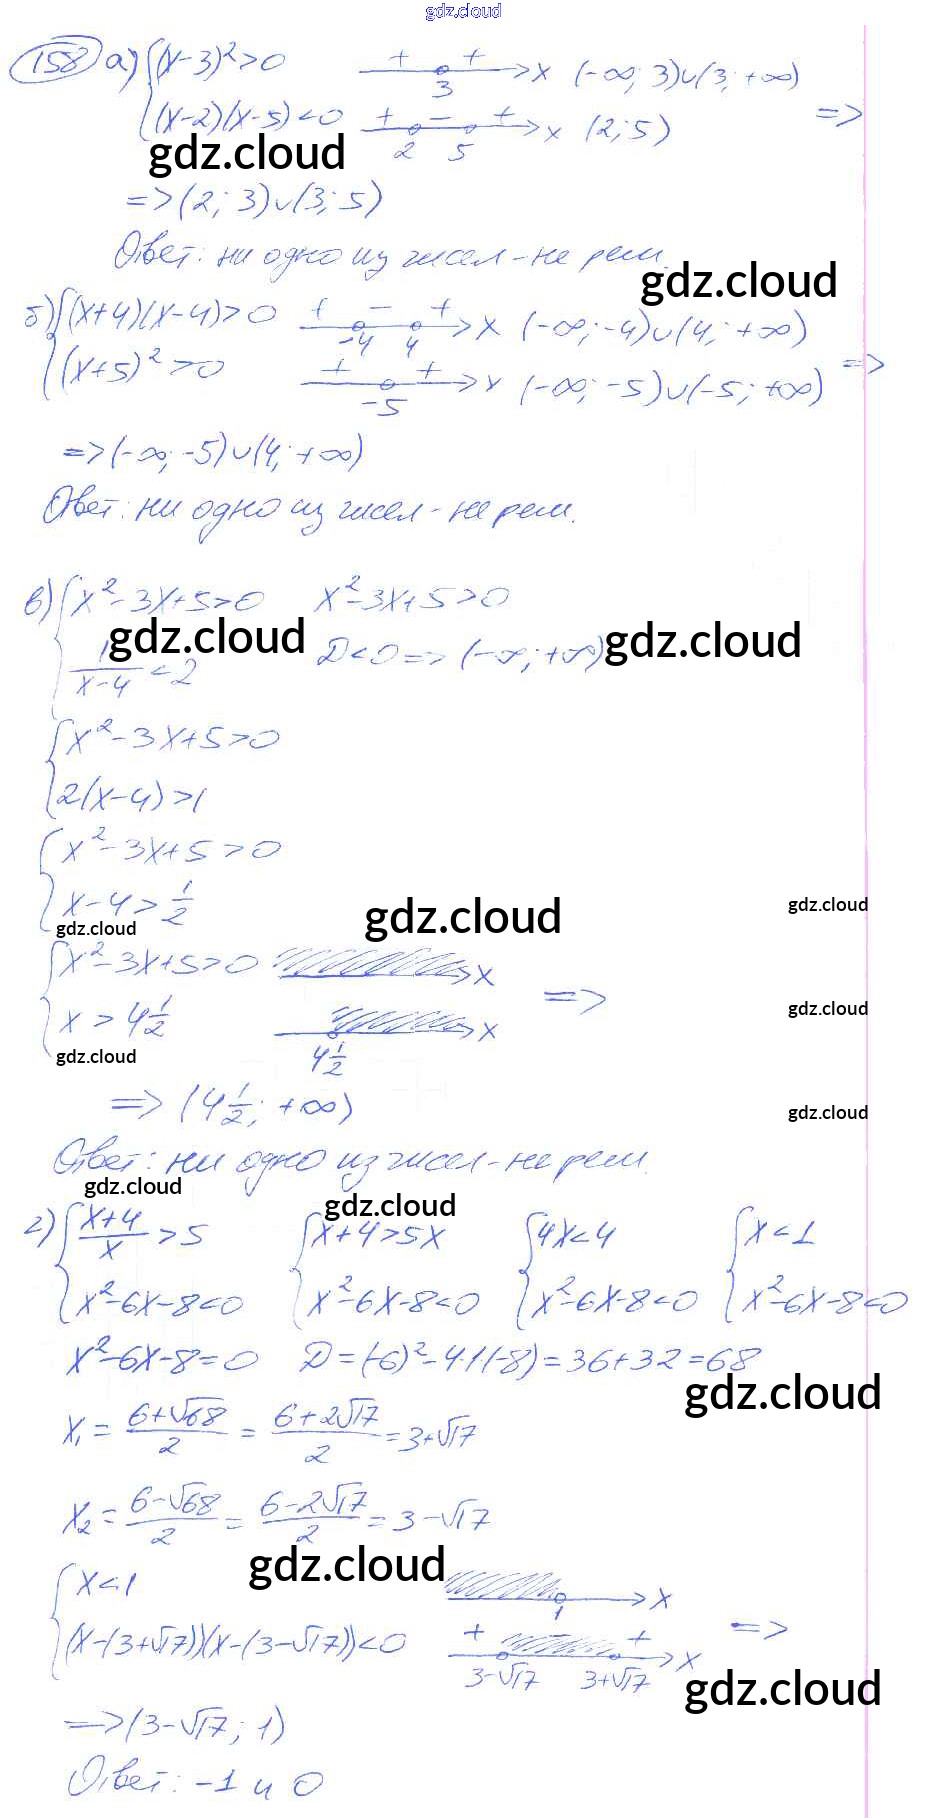 gdz.cloud
158 а) { (x-3)² > 0   + + 3 x (-∞; 3)∪(3; +∞)
(x-2)(x-5) < 0   + - + 2 5 x (2; 5) =>
gdz.cloud
=> (2; 3)∪(3; 5)
Ответ: ни одно из чисел - не реш.
gdz.cloud
б) { (x+4)(x-4) > 0   + - + -4 4 x (-∞; -4)∪(4; +∞)
(x+5)² > 0   + + -5 x (-∞; -5)∪(-5; +∞) =>
=> (-∞; -5)∪(4; +∞)
Ответ: ни одно из чисел - не реш.
в) { x²-3x+5>0   x²-3x+5>0
gdz.cloud gdz.cloud
1/(x-4) < 2   D<0 => (-∞; +∞)
{ x²-3x+5>0
2(x-4)>1
{ x²-3x+5>0
x-4 > 1/2
gdz.cloud gdz.cloud
gdz.cloud
{ x²-3x+5>0   x
x > 4 1/2   4 1/2 x =>
gdz.cloud
gdz.cloud
=> (4 1/2; +∞)
gdz.cloud
Ответ: ни одно из чисел - не реш.
gdz.cloud
gdz.cloud
г) { (x+4)/x > 5   { x+4>5x   { 4x<4   { x<1
x²-6x-8<0   x²-6x-8<0   x²-6x-8<0   x²-6x-8<0
x²-6x-8=0   D=(-6)²-4·1(-8)=36+32=68
gdz.cloud
x₁ = (6+√68)/2 = (6+2√17)/2 = 3+√17
x₂ = (6-√68)/2 = (6-2√17)/2 = 3-√17
gdz.cloud
{ x<1   1 x
(x-(3+√17))(x-(3-√17))<0   + + 3-√17 3+√17 x =>
gdz.cloud
=> (3-√17; 1)
Ответ: -1 и 0